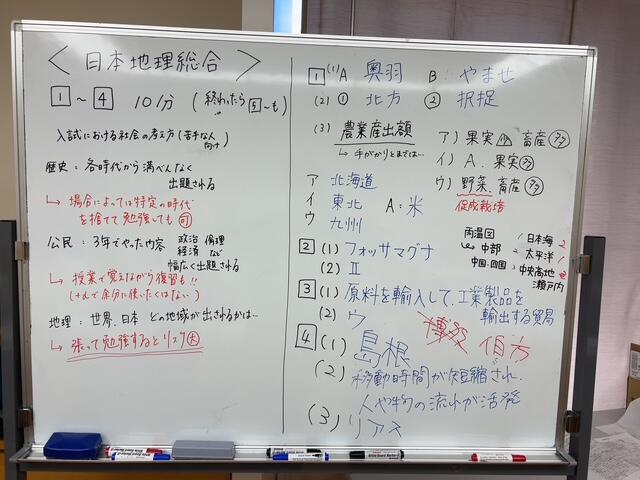 ＜日本地理総合＞
1 ～ 4 10分 (終わったら5～も)
入試における社会の考え方(苦手な人向け)
歴史：各時代から満べんなく
出題される
↳ 場合によっては特定の時代
を捨てて勉強しても可
公民：3年でやった内容 政治 倫理
経済 など
幅広く出題される
↳ 授業で覚えながら復習も!!
地理：世界、日本 どの地域が出されるかは…
↳ 張って勉強するとリスク大
1 (1)A 奥羽 B やませ
(2) ① 北方 ② 択捉
(3) 農業産出額
↳ 手がかりとまでは…
ア) 果実 畜産 多
イ) A、果実 多
ウ) 野菜、畜産 多
促成栽培
ア 北海道
イ 東北 A：米
ウ 九州
雨温図
中部
中国・四国
日本海 2
太平洋 1
中央高地
瀬戸内
2 (1) フォッサマグナ
(2) Ⅱ
3 (1) 原料を輸入して、工業製品を
輸出する貿易
(2) ウ
4 (1) 島根 伯方
(2) 移動時間が短縮され、
人や物の流れが活発
(3) リアス